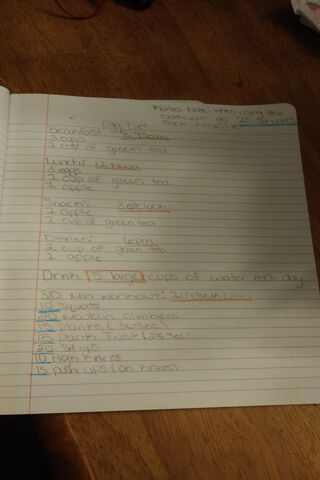 *Extra Note: when using the
bathroom do 20 squats
each time!!
Egg Diet
Breakfast: 8:45am
3 eggs
1 cup of green tea
Lunch: 12 Noon
3 eggs
1 cup of green tea
1 apple
Snack: 3 o'clock
1 apple
1 cup of green tea
Dinner: 6pm
2 cup of green tea
1 apple
Drink 5 large cups of water each day
30 Min Workout:
10 Squats
20 Mountain Climbers
15 Planks (30sec)
15 Plank Twist (25 sec)
20 Sit ups
10 High Knees
15 Push ups (on knees)